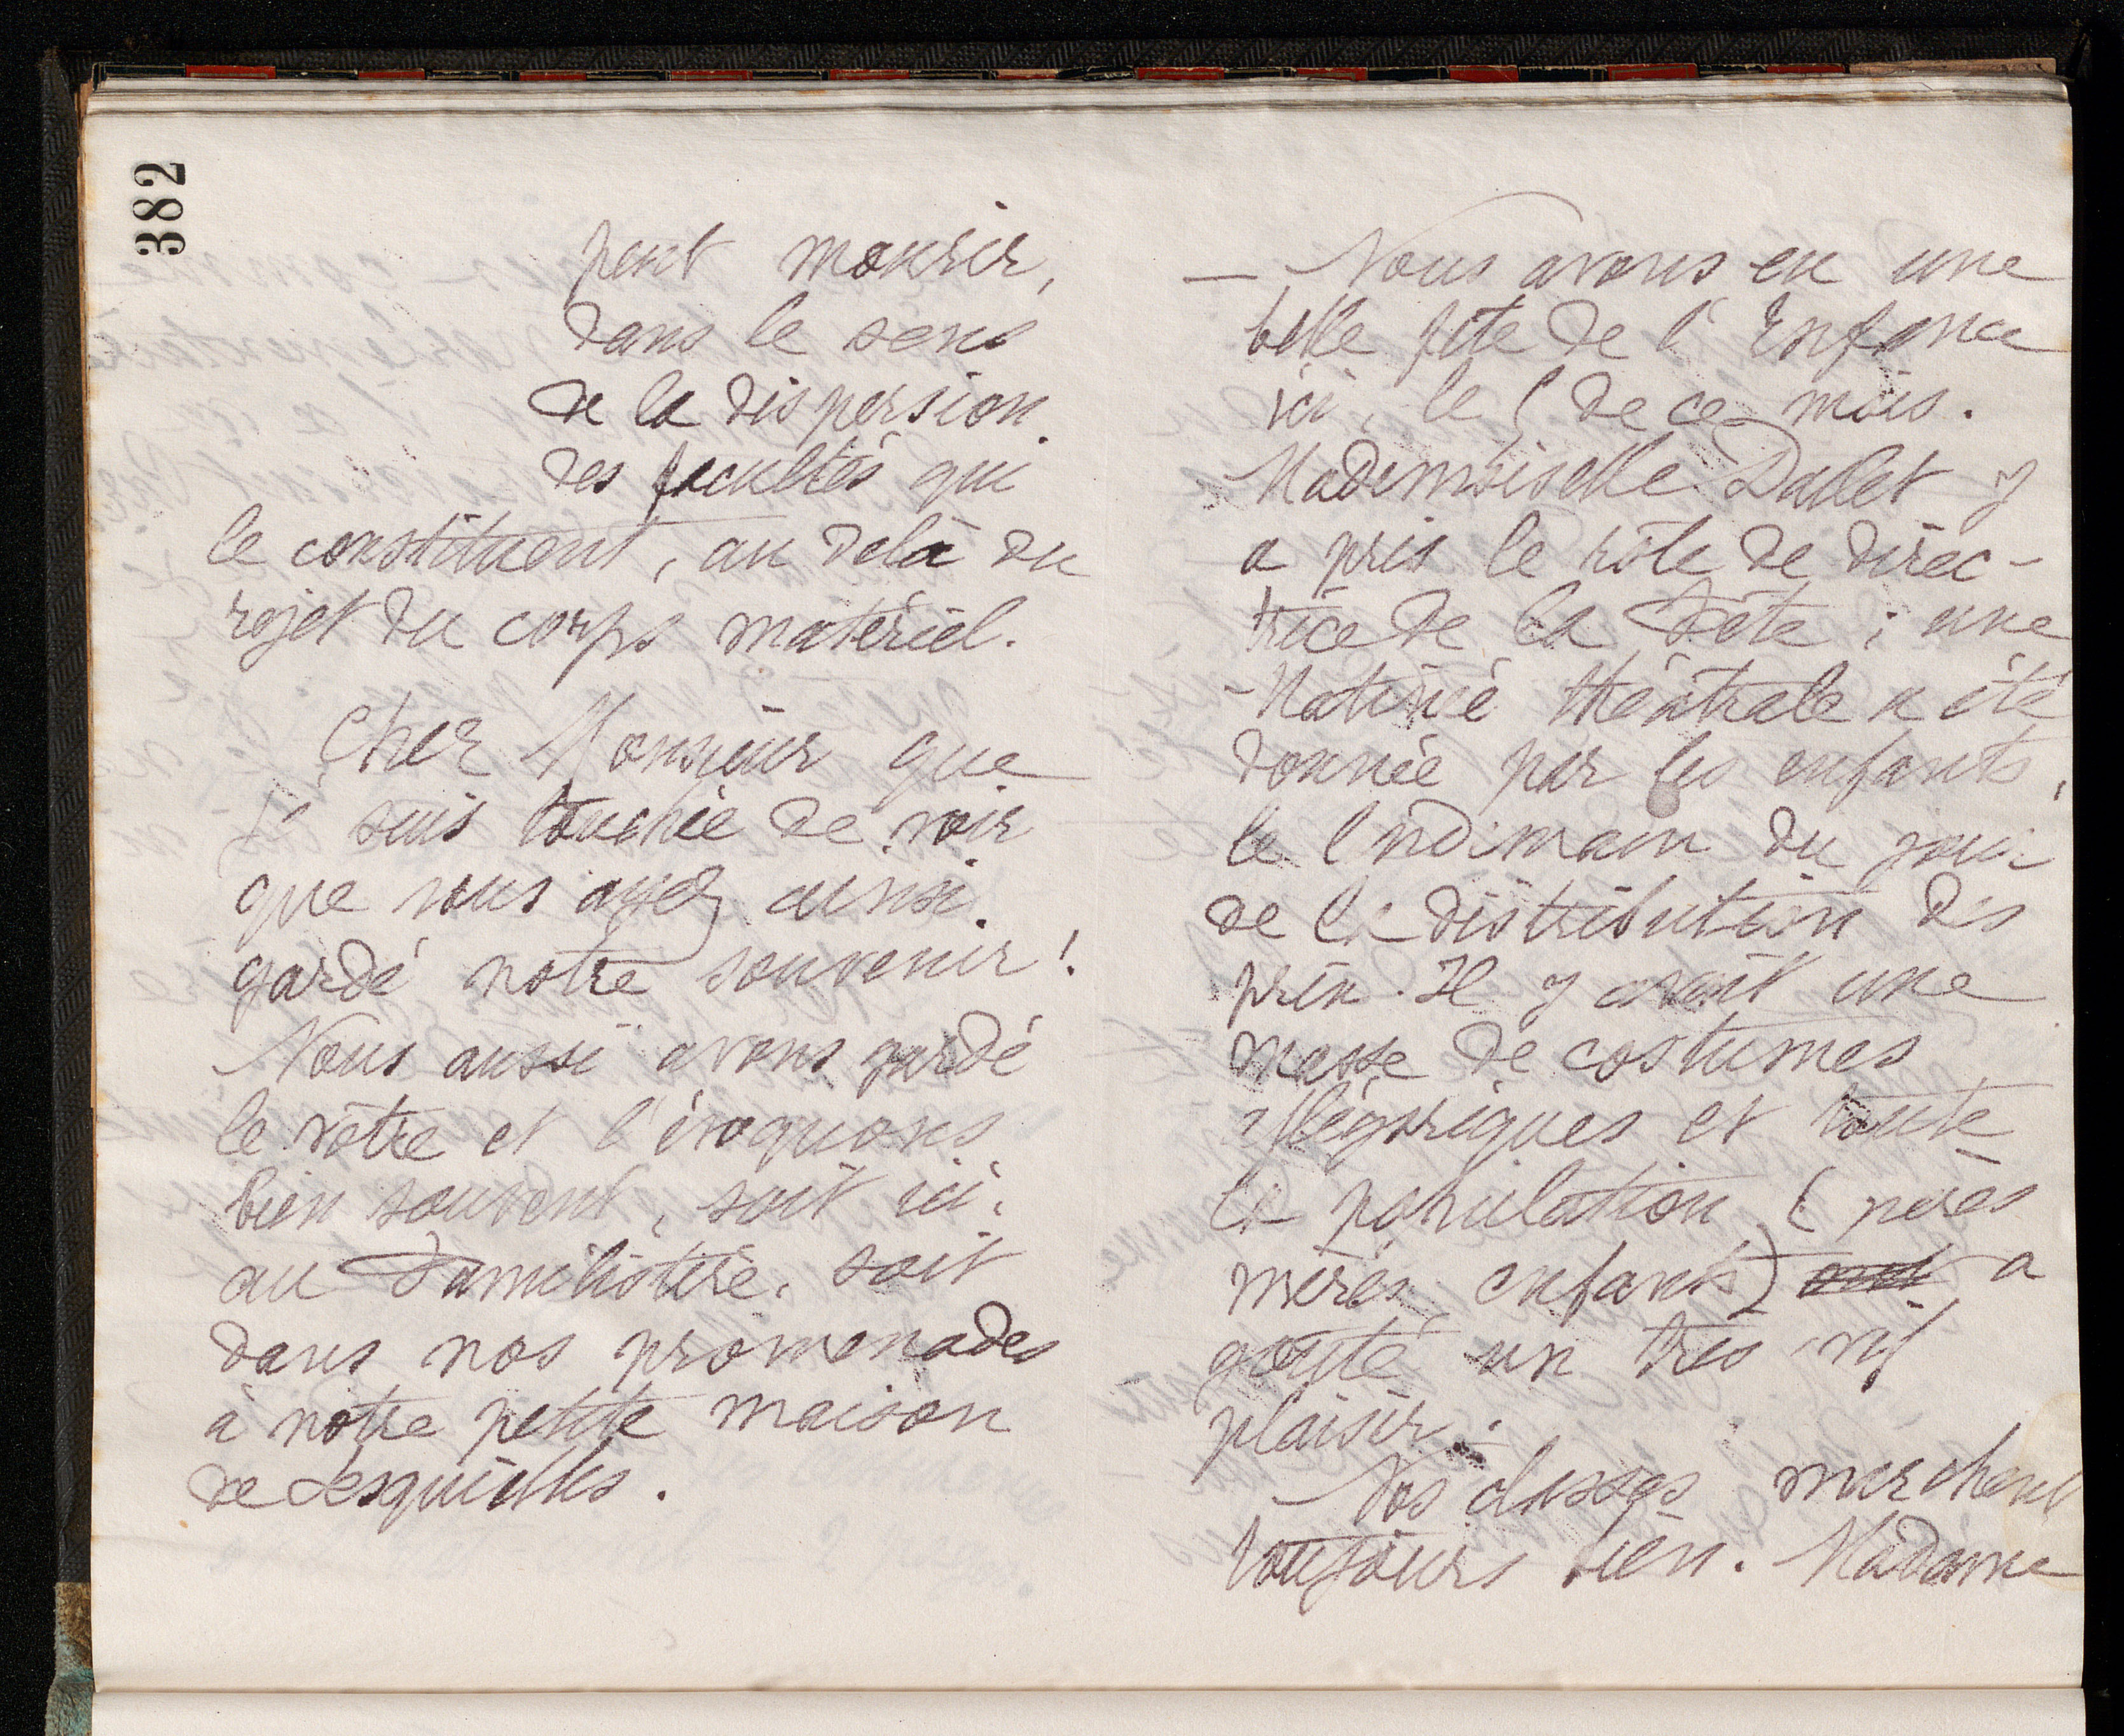 382
peut mourir,
dans le sens
de la dispersion
des facultés qui
le constituent, au delà du
rejet du corps matériel.
Cher Monsieur que
je suis touchée de voir
que vous ayez ainsi
gardé notre souvenir !
Nous aussi avons gardé
le vôtre et l'évoquons
bien souvent, soit ici,
au Familistère, soit
dans nos promenades
à notre petite maison
de Lesquielles.
— Nous avons eu une
belle fête de l'Enfance
ici, le 5 de ce mois.
Mademoiselle Dallet y
a pris le rôle de direc-
trice de la Fête ; une
Matinée théâtrale a été
donnée par les enfants,
le lendemain du jour
de la distribution des
prix. Il y avait une
masse de costumes
allégoriques et toute
la population (pères
mères, enfants) ont a
goûté un très vif
plaisir.
— Nos classes marchent
toujours bien. Madame